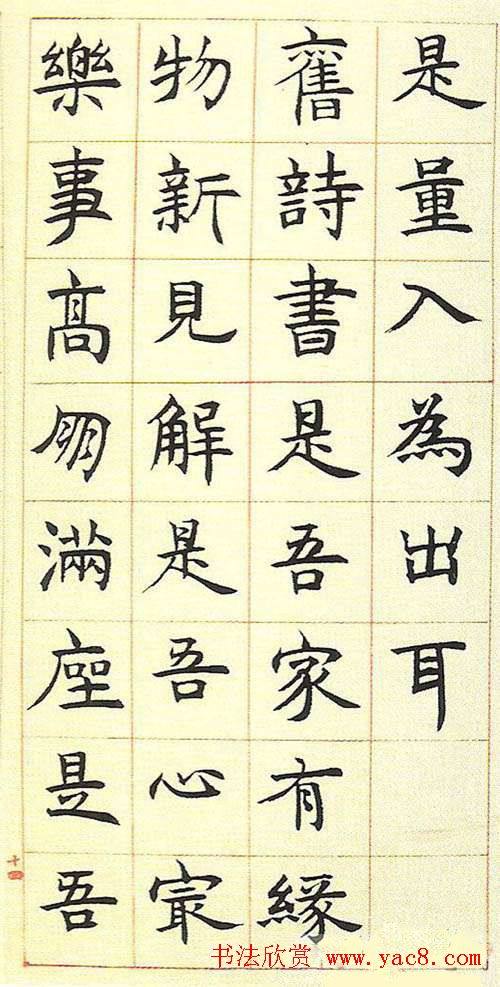 是量入為出耳
舊詩書是吾家有緣
物新見解是吾心㝡
樂事高明滿座是吾
十四
书法欣赏 www.yac8.com